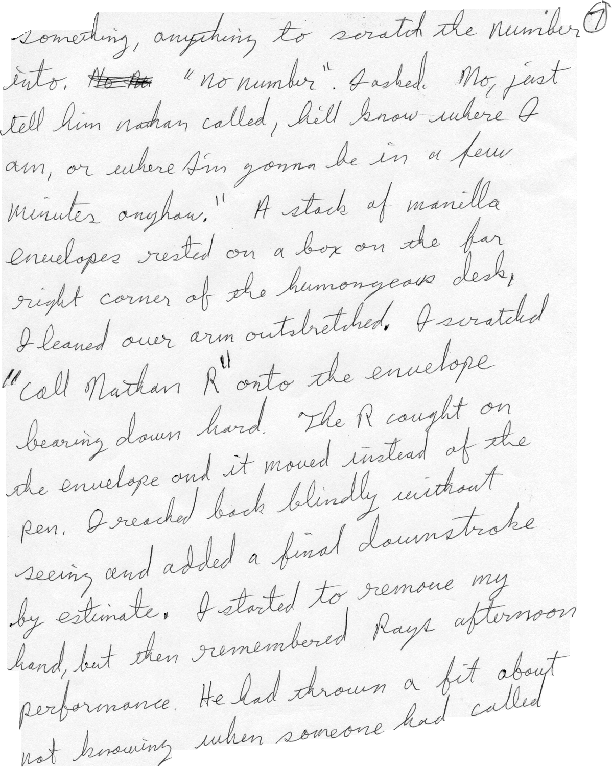 something, anything to scratch the number 7
into. No no "no number". I asked. Mo, just
tell him nathan called, he'll know where I
am, or where I'm gonna be in a few
minutes anyhow." A stack of manilla
envelopes rested on a box on the far
right corner of the humongeous desk,
I leaned over arm outstretched. I scratched
"call Nathan R" onto the envelope
bearing down hard. The R caught on
the envelope and it moved instead of the
pen. I reached back blindly without
seeing and added a final downstroke
by estimate. I started to remove my
hand, but then remembered Rays afternoon
performance. He had thrown a fit about
not knowing when someone had called